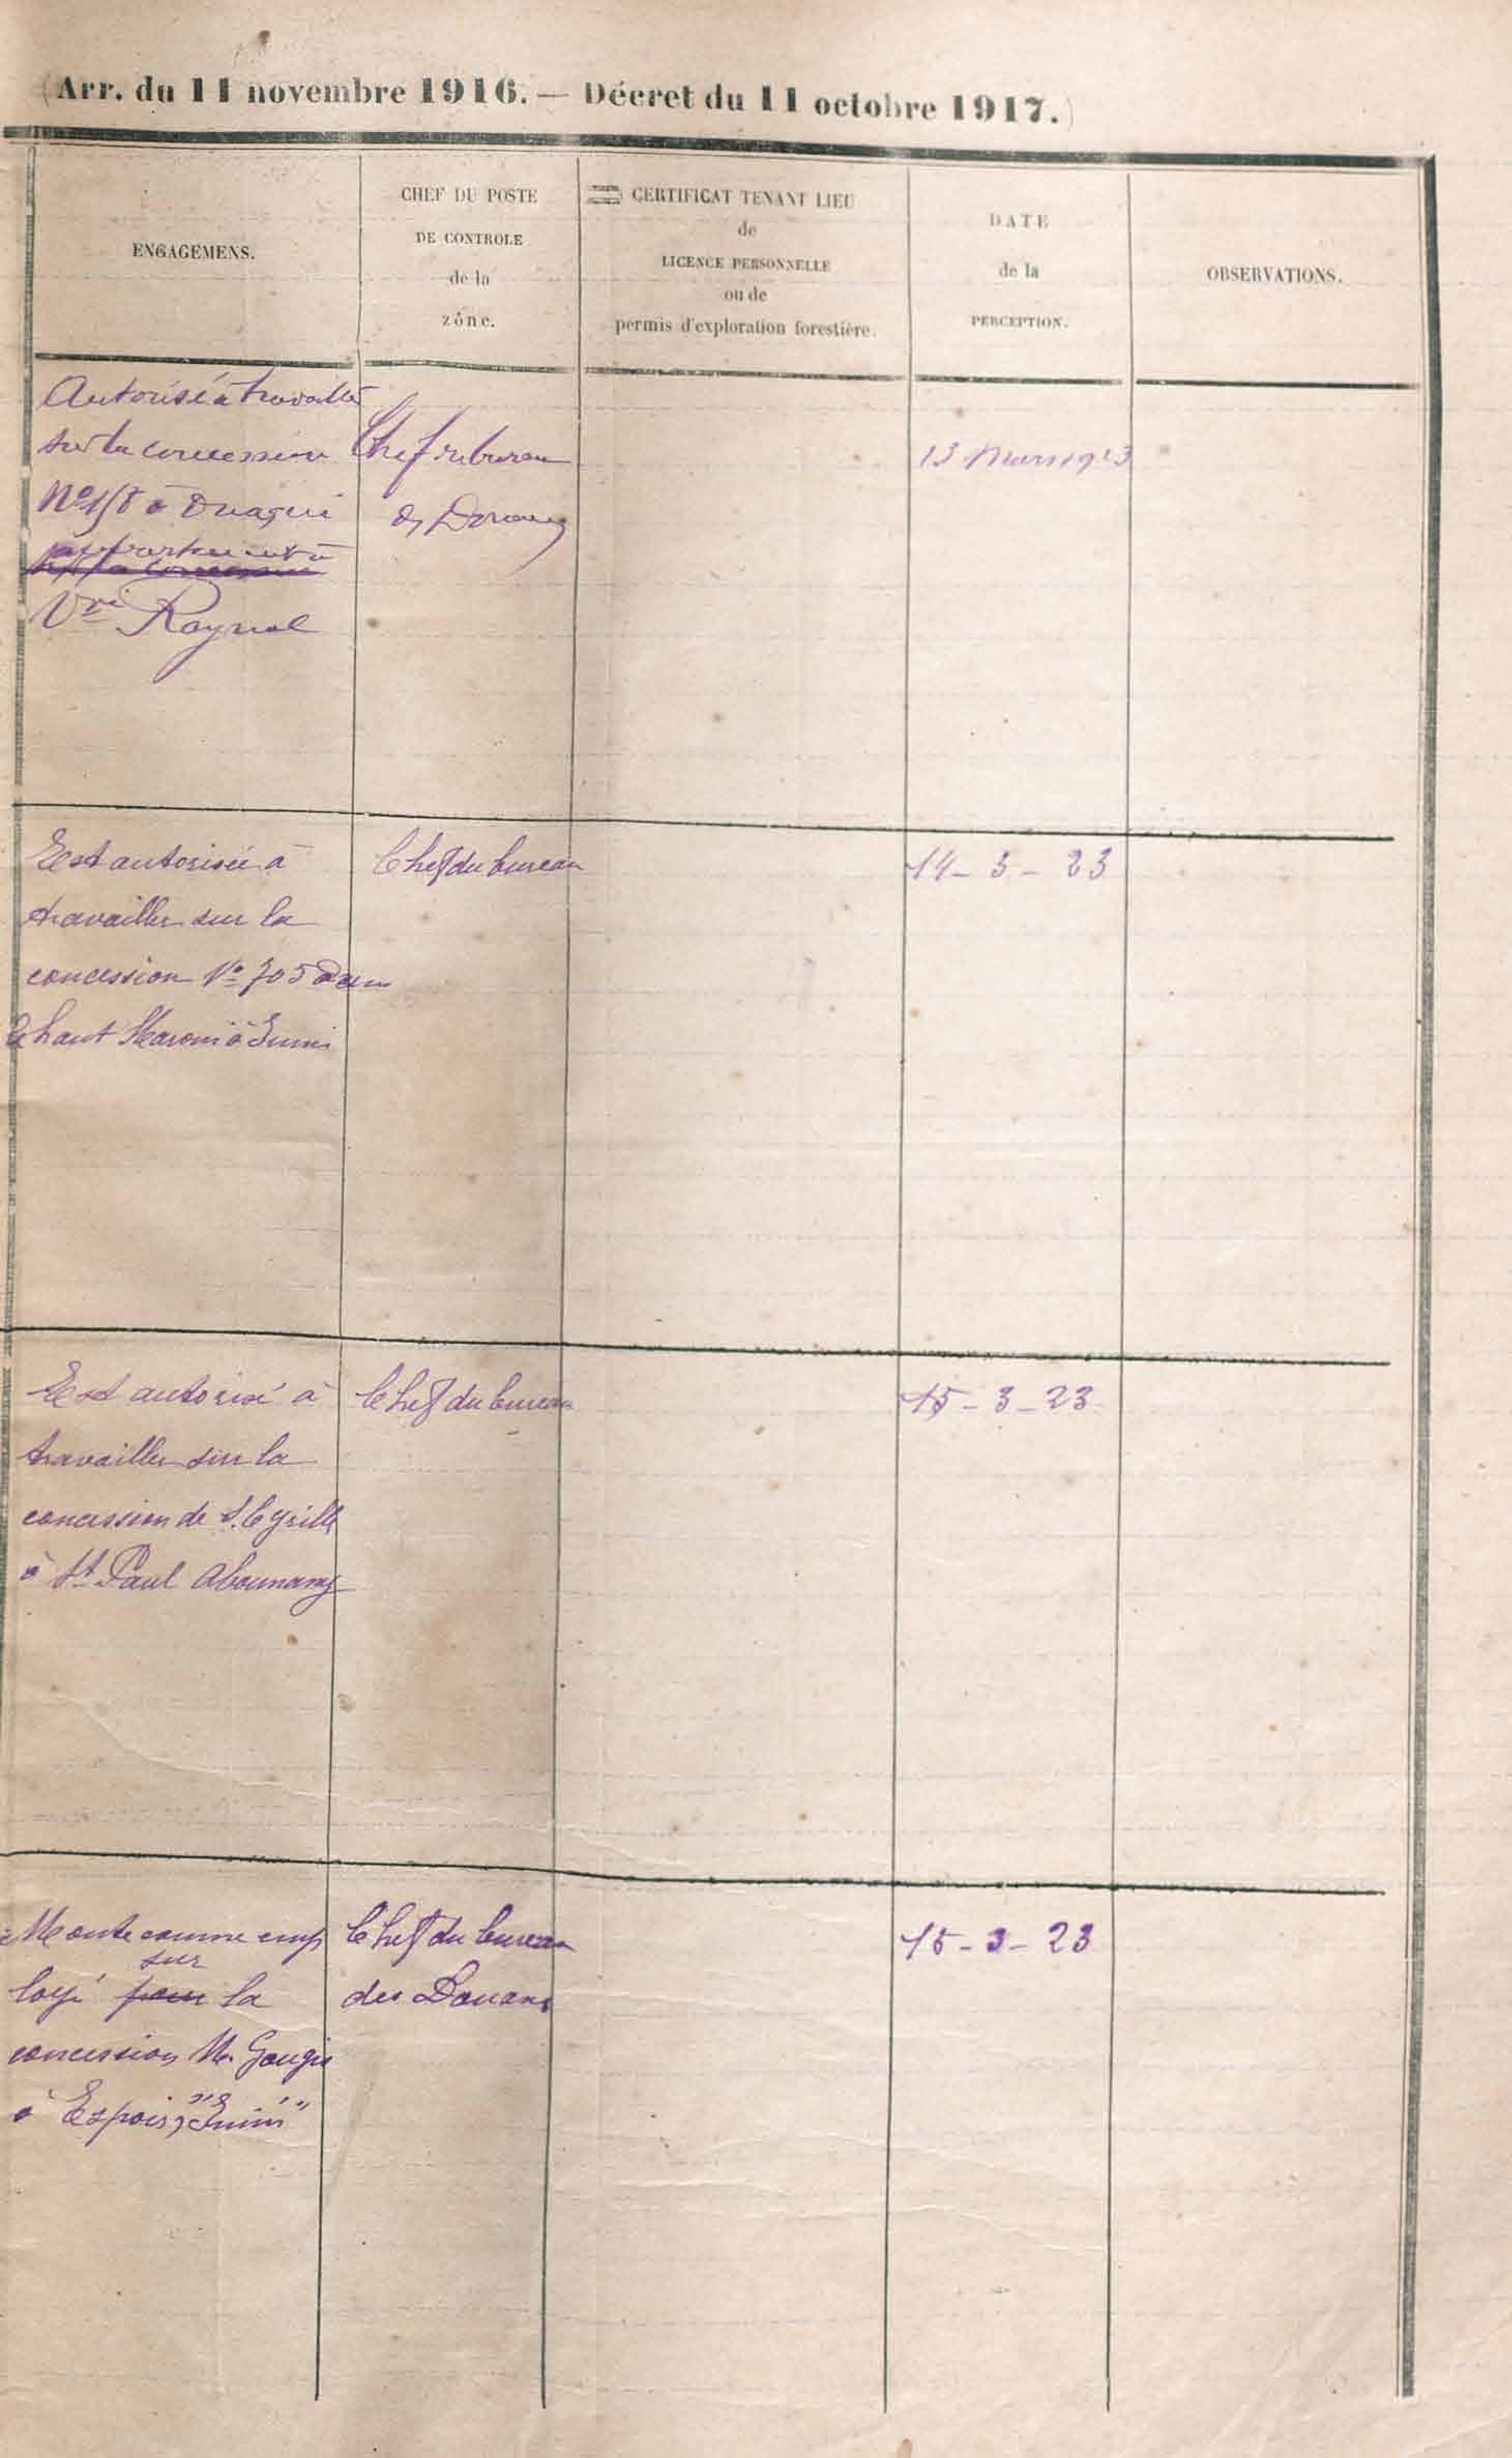 (Arr. du 11 novembre 1916. — Décret du 11 octobre 1917.)
ENGAGEMENS.
CHEF DU POSTE
DE CONTROLE
de la
zône.
CERTIFICAT TENANT LIEU
de
LICENCE PERSONNELLE
ou de
permis d'exploration forestière.
DATE
de la
PERCEPTION.
OBSERVATIONS.
Autorisé à travailler
sur la concession
No 158 à
appartenant à
Vve Raynal
Chef du bureau
des Douanes
13 Mars 1923
Est autorisée à
travailler sur la
concession No 705 dans
le haut Maroni à Inini
Chef du bureau
14-3-23
Est autorisé à
travailler sur la
concession de S. Cyrille
à St Paul Abounamy
Chef du bureau
15-3-23
Monte comme emp
sur
loyé pour la
concession M. Gougis
à Espoir, "Inini"
Chef du bureau
des Douanes
15-3-23